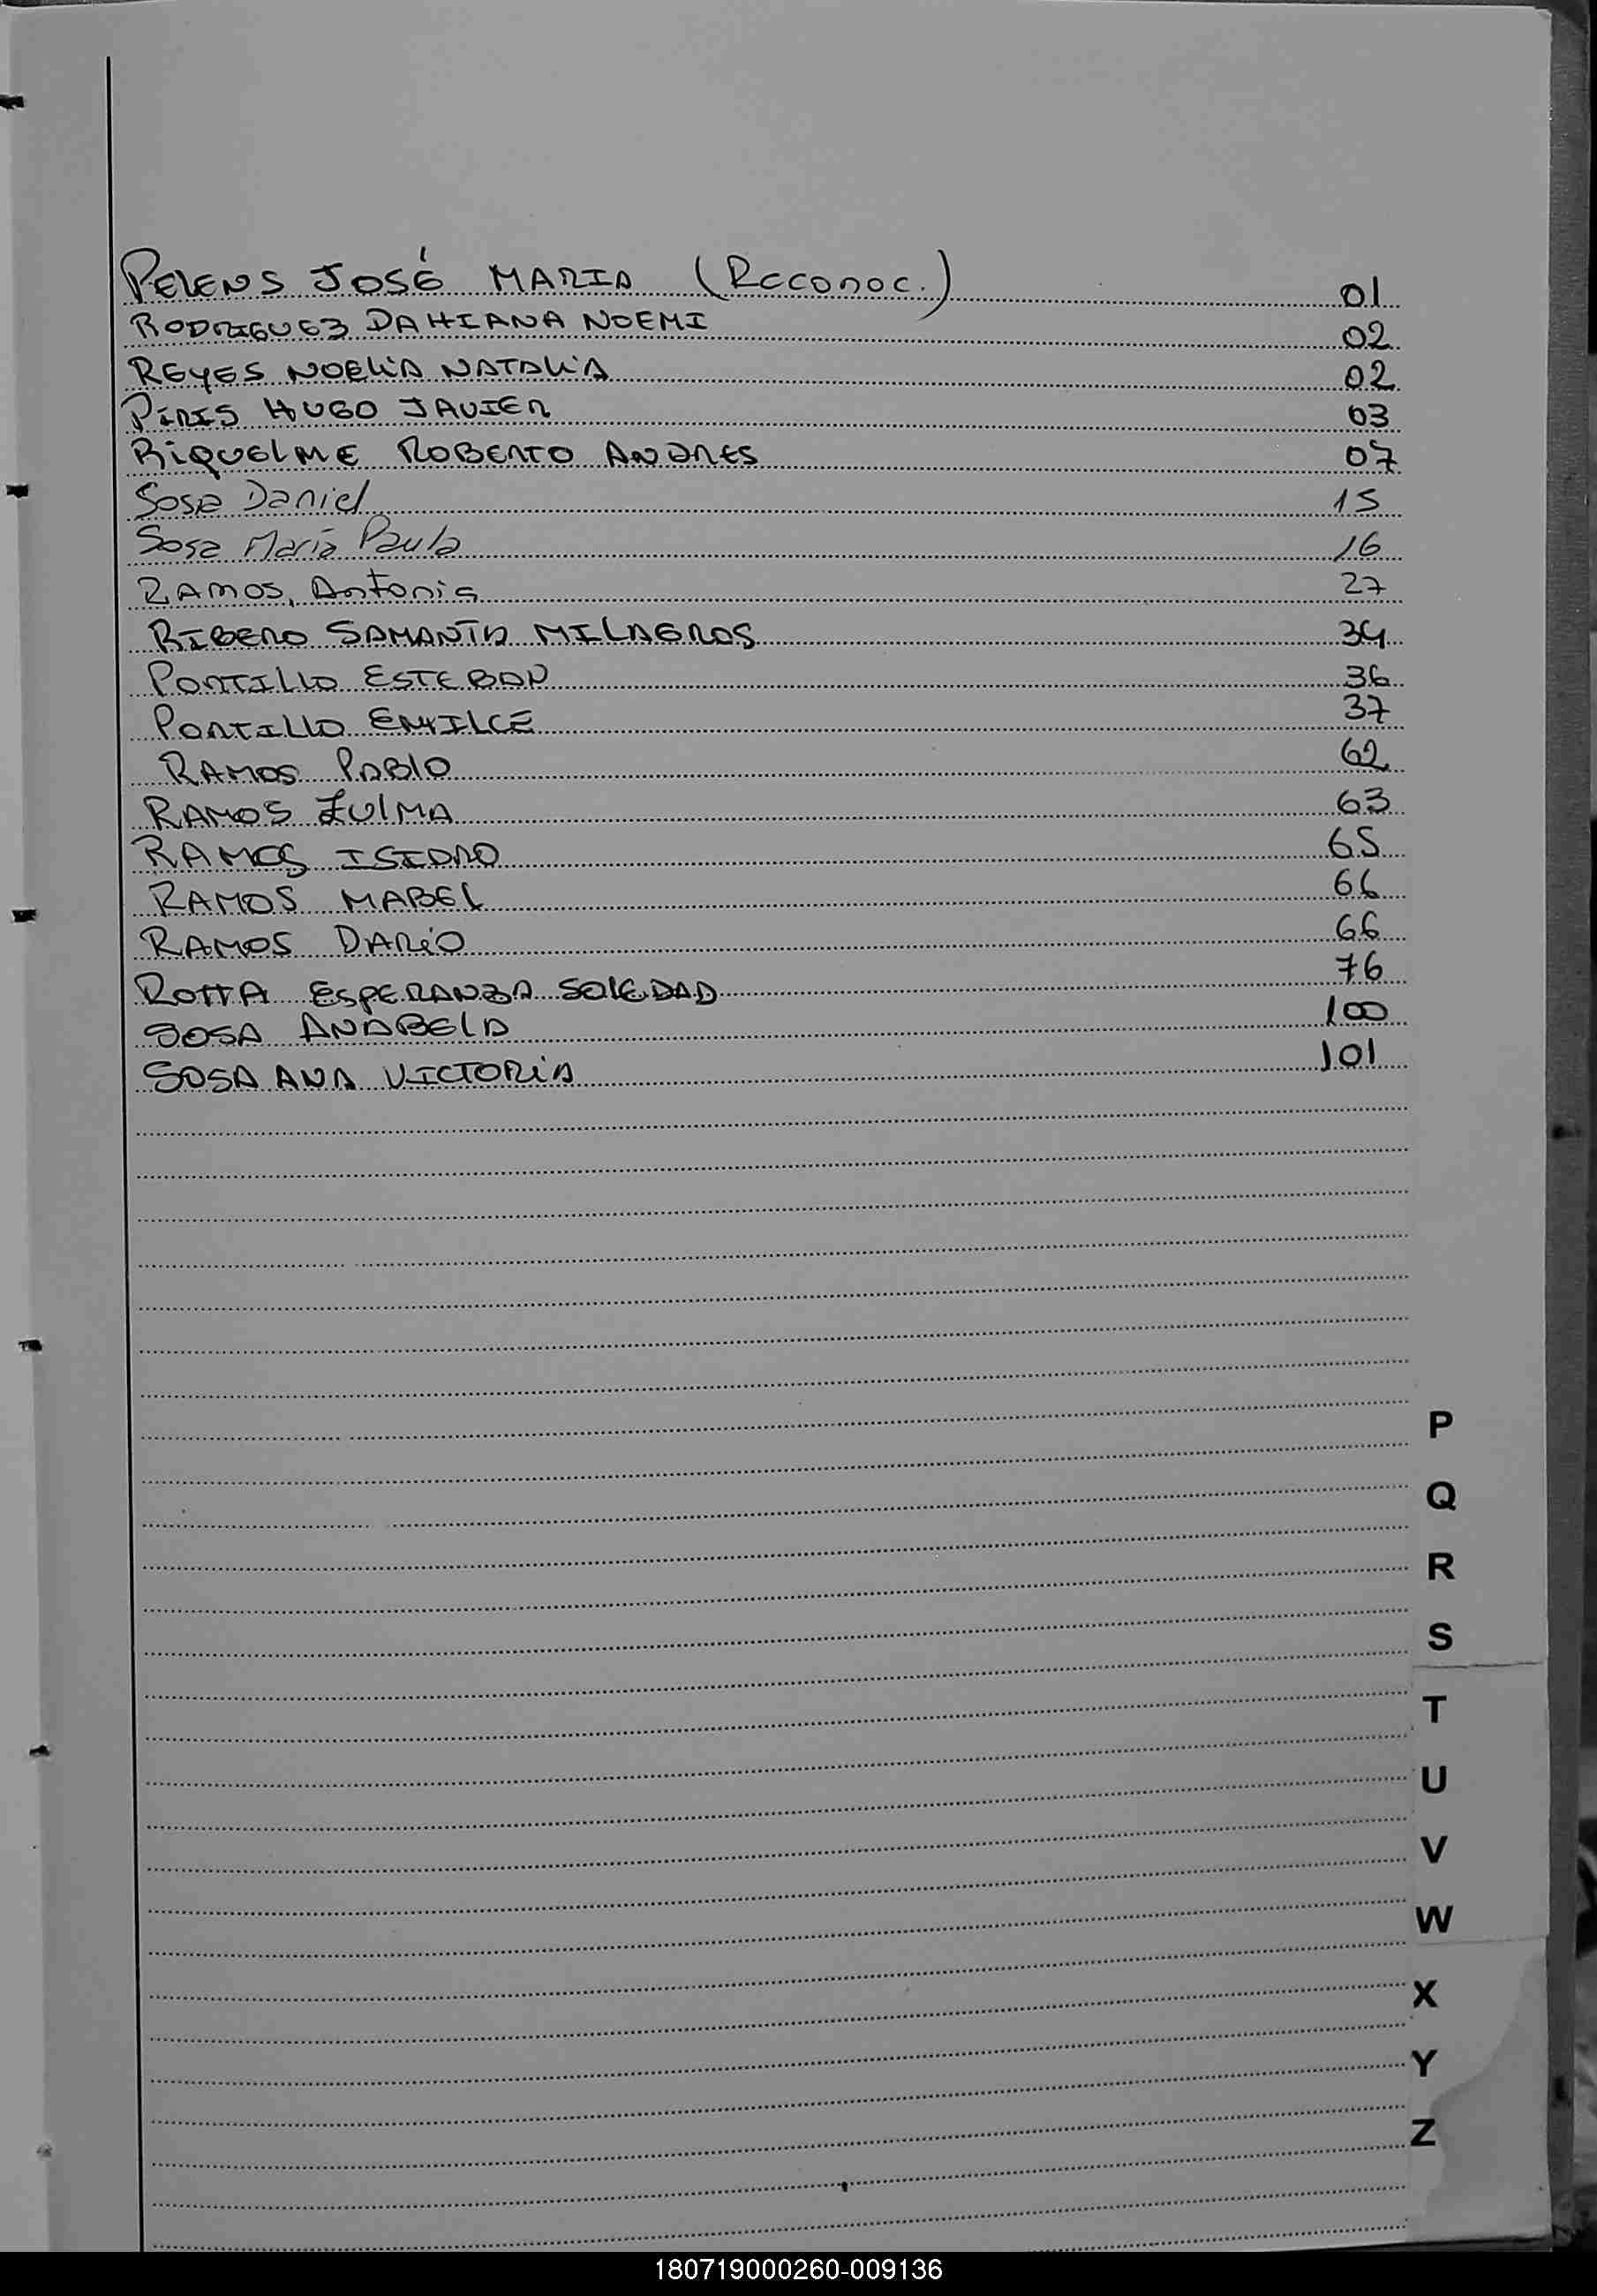 PELENS JOSÉ MARIA (Reconoc.) 01
RODRIGUEZ DAHIANA NOEMI 02
REYES NOELIA NATALIA 02
PIRIS HUGO JAVIER 03
RIQUELME ROBERTO ANDRES 07
Sosa Daniel 15
Sosa Maria Paula 16
RAMOS, Antonia 27
RIBERO SAMANTA MILAGROS 34
PORTILLO ESTEBAN 36
PORTILLO EMILCE 37
RAMOS PABLO 62
RAMOS ZULMA 63
RAMOS ISIDRO 65
RAMOS MABEL 66
RAMOS DARIO 66
ROTTA ESPERANZA SOLEDAD 76
SOSA ANABELA 100
SOSA ANA VICTORIA 101
P
Q
R
S
T
U
V
W
X
Y
Z
180719000260-009136